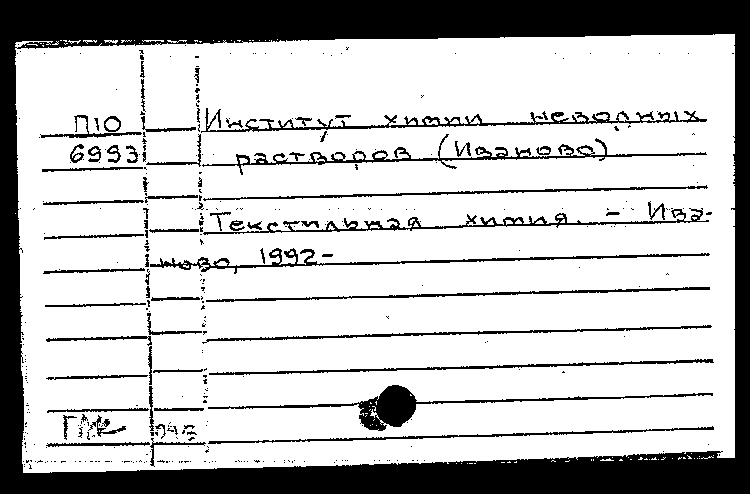 П10 Институт химии неводных
6993 растворов (Иваново)
Текстильная химия. - Ива-
ново, 1992-